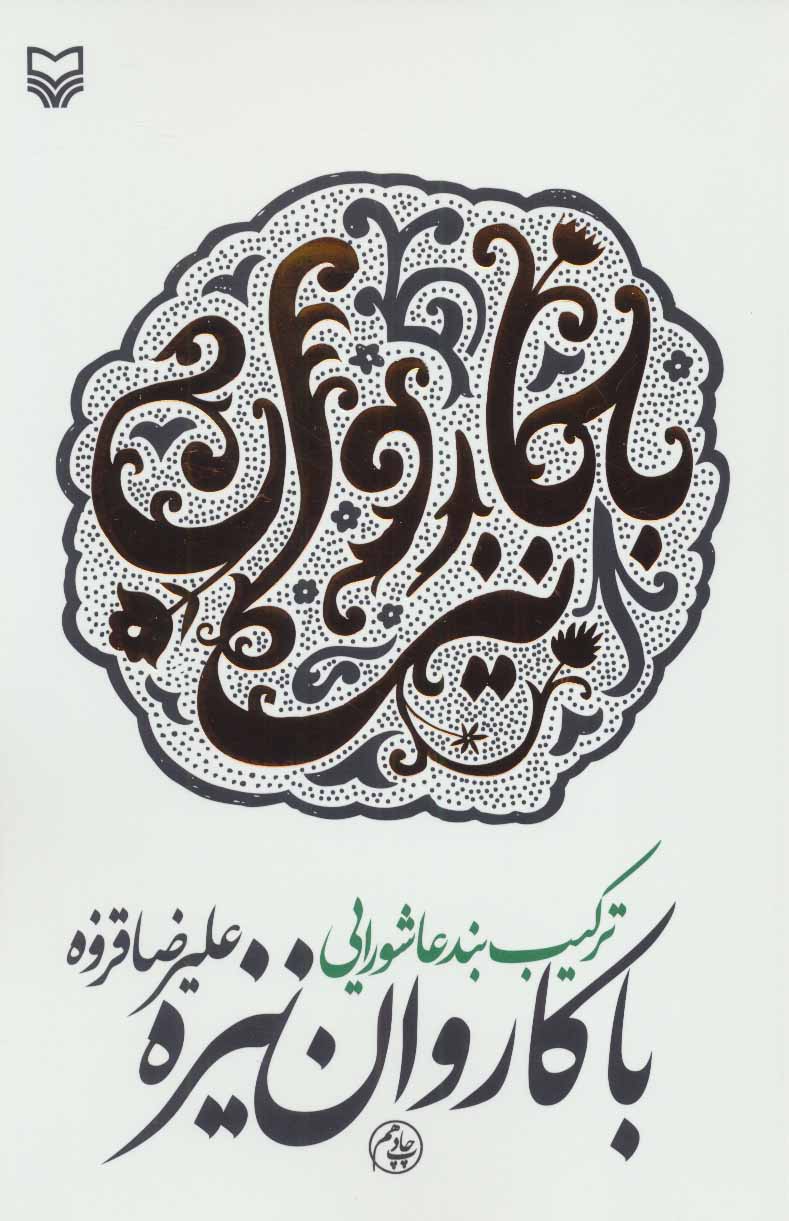 با کاروان
نیزه
ترکیب‌بند عاشورایی
علیرضا قزوه
با کاروان نیزه
چاپ دهم